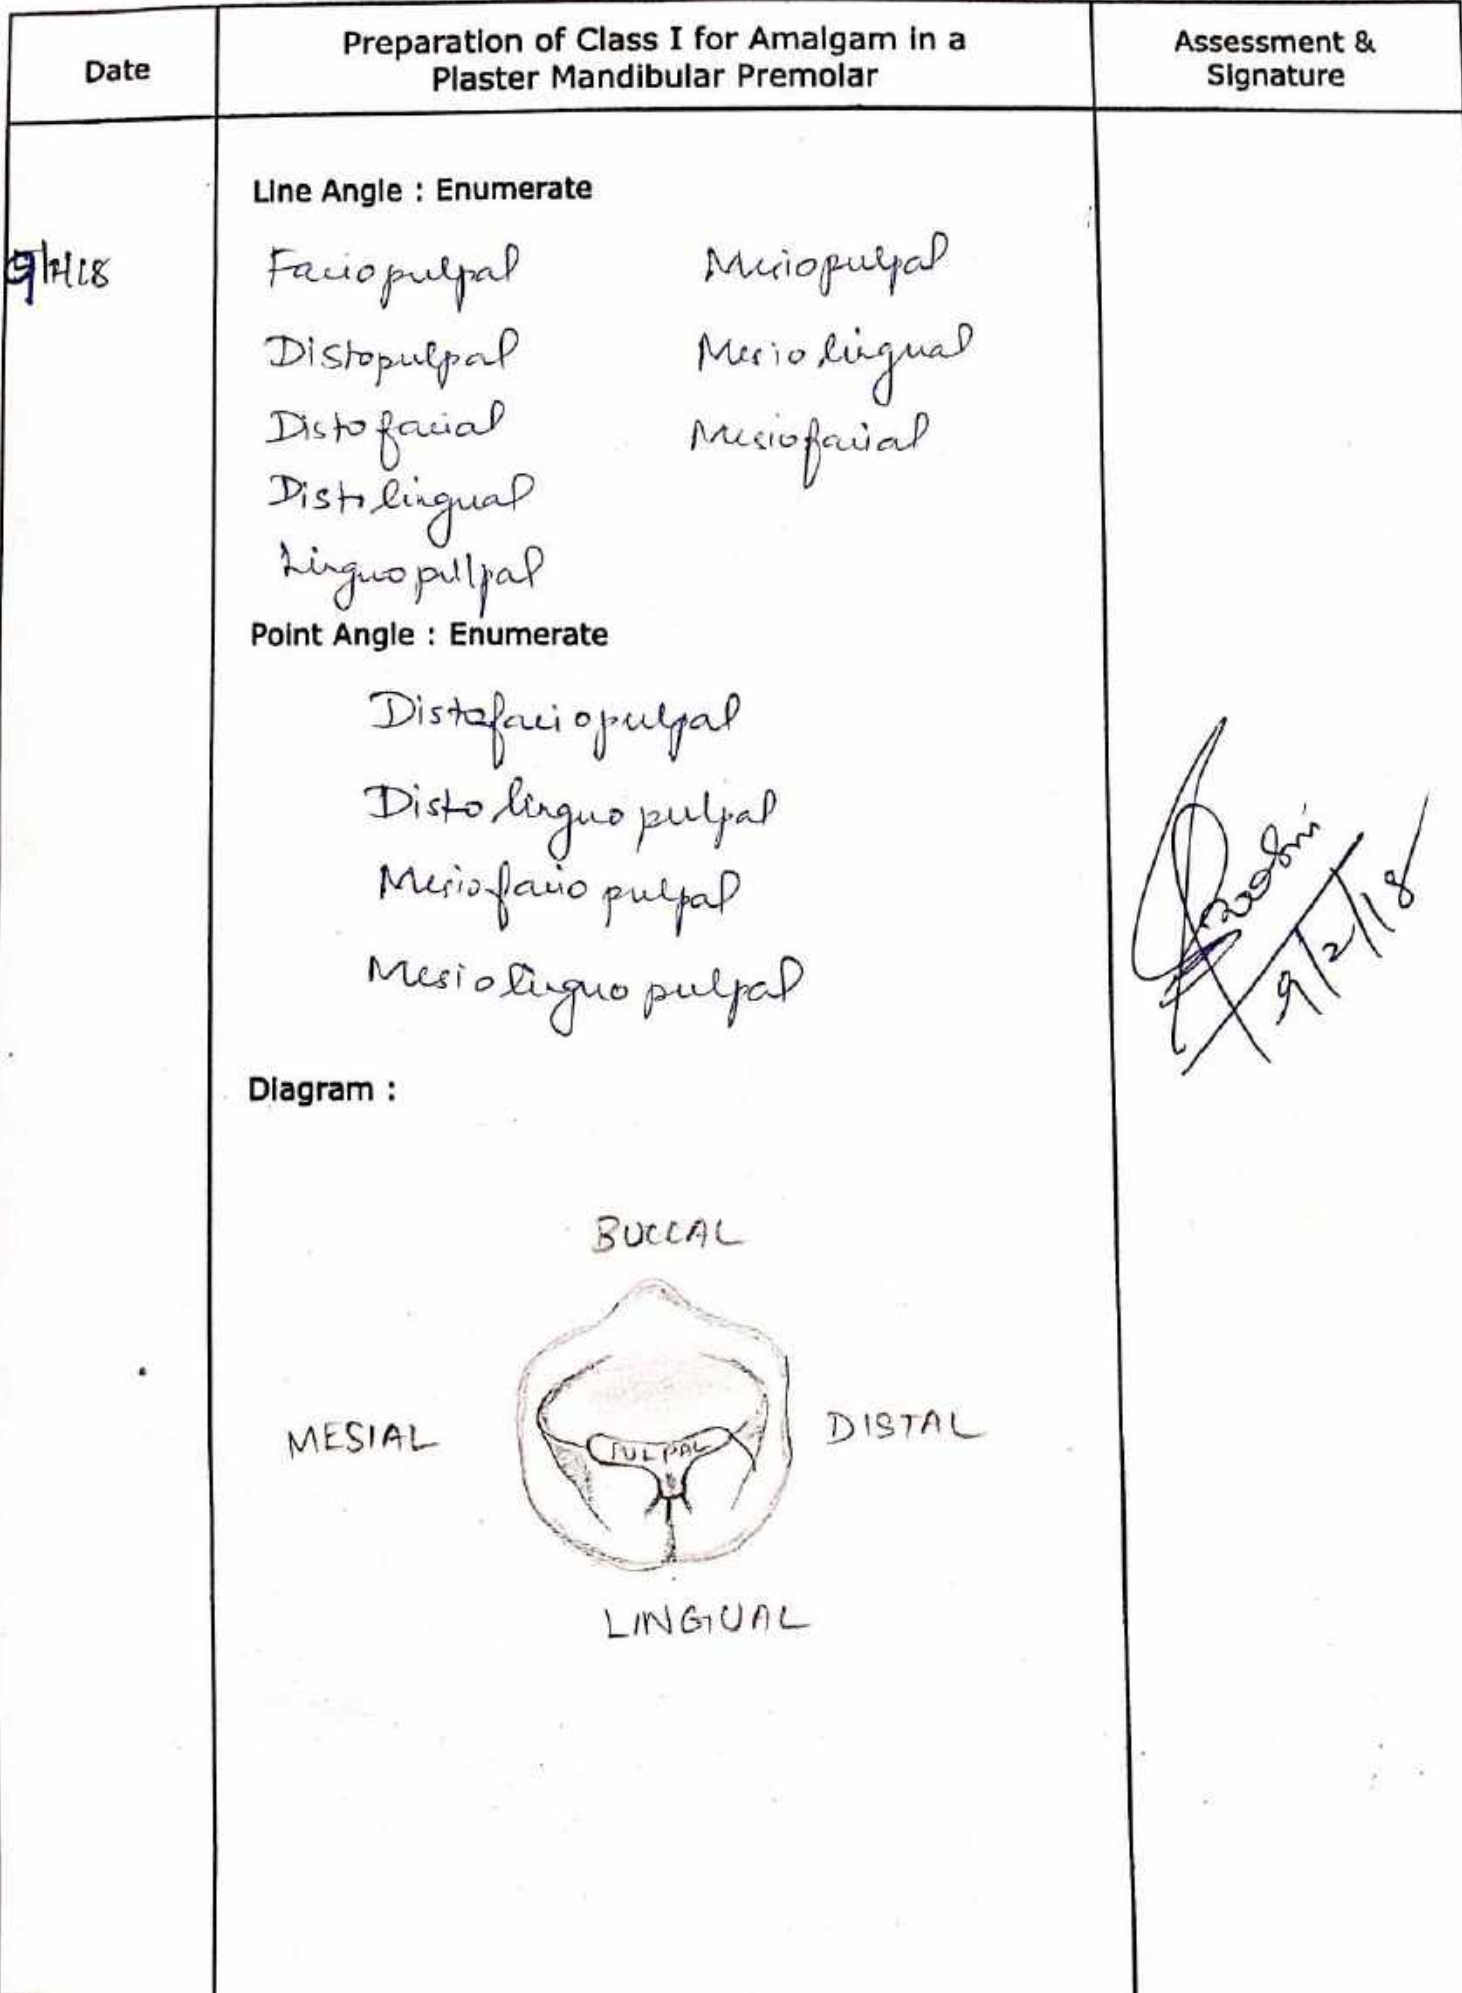 Date
Preparation of Class I for Amalgam in a
Plaster Mandibular Premolar
Assessment &
Signature
Line Angle : Enumerate
Faciopulpal Mesiopulpal
Distopulpal Mesiolingual
Distofacial Mesiofacial
Distolingual
Linguopulpal
Point Angle : Enumerate
Distofaciopulpal
Distolinguopulpal
Mesiofaciopulpal
Mesiolinguopulpal
9/2/18
Diagram :
BUCCAL
MESIAL
PULPAL
DISTAL
LINGUAL